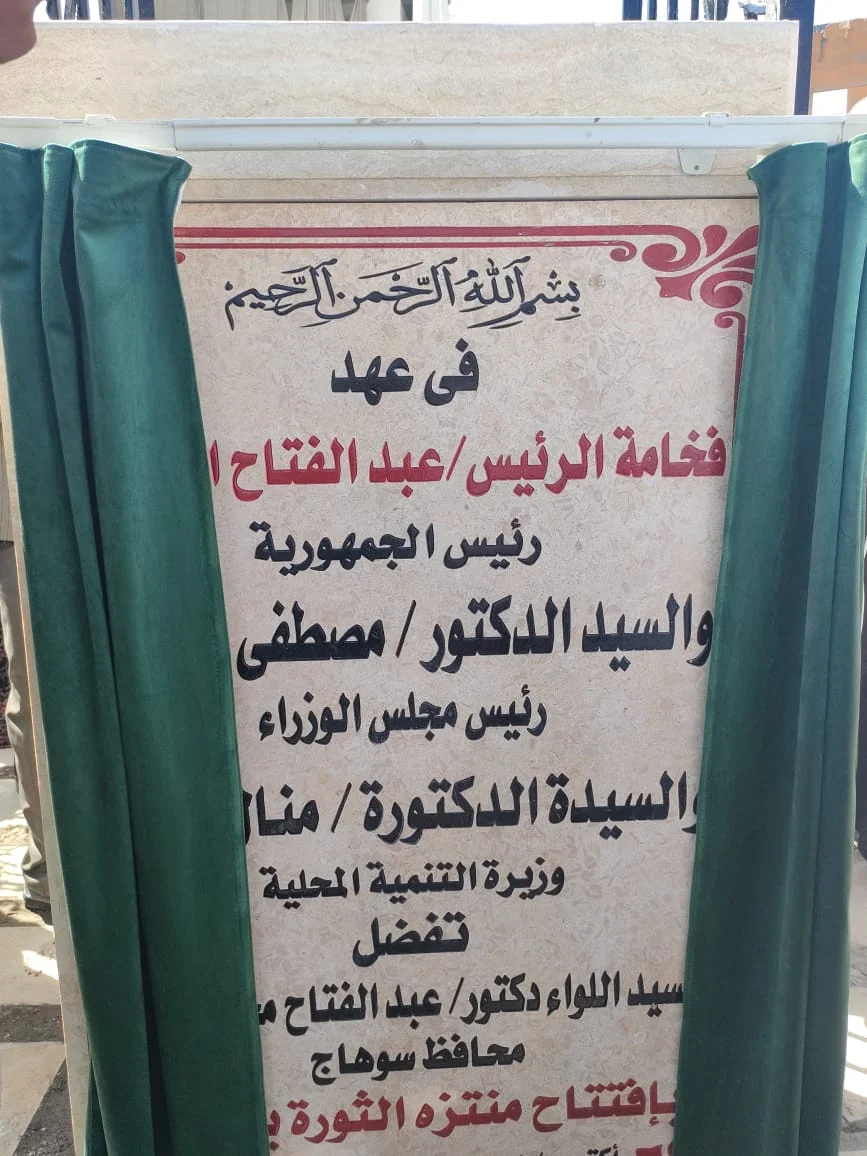 بسم الله الرحمن الرحيم
فى عهد
فخامة الرئيس/عبد الفتاح
رئيس الجمهورية
والسيد الدكتور / مصطفى
رئيس مجلس الوزراء
والسيدة الدكتورة / منال
وزيرة التنمية المحلية
تفضل
سيد اللواء دكتور/ عبد الفتاح
محافظ سوهاج
بإفتتاح منتزه الثورة